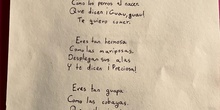 Como los perros al nacer
Que dicen ¡Guau, guau!
Te quiero comer.
Eres tan hermosa
Como las mariposas.
Despliegan sus alas
Y te dicen ¡Preciosa!
Eres tan guapa
Como las cobayas.